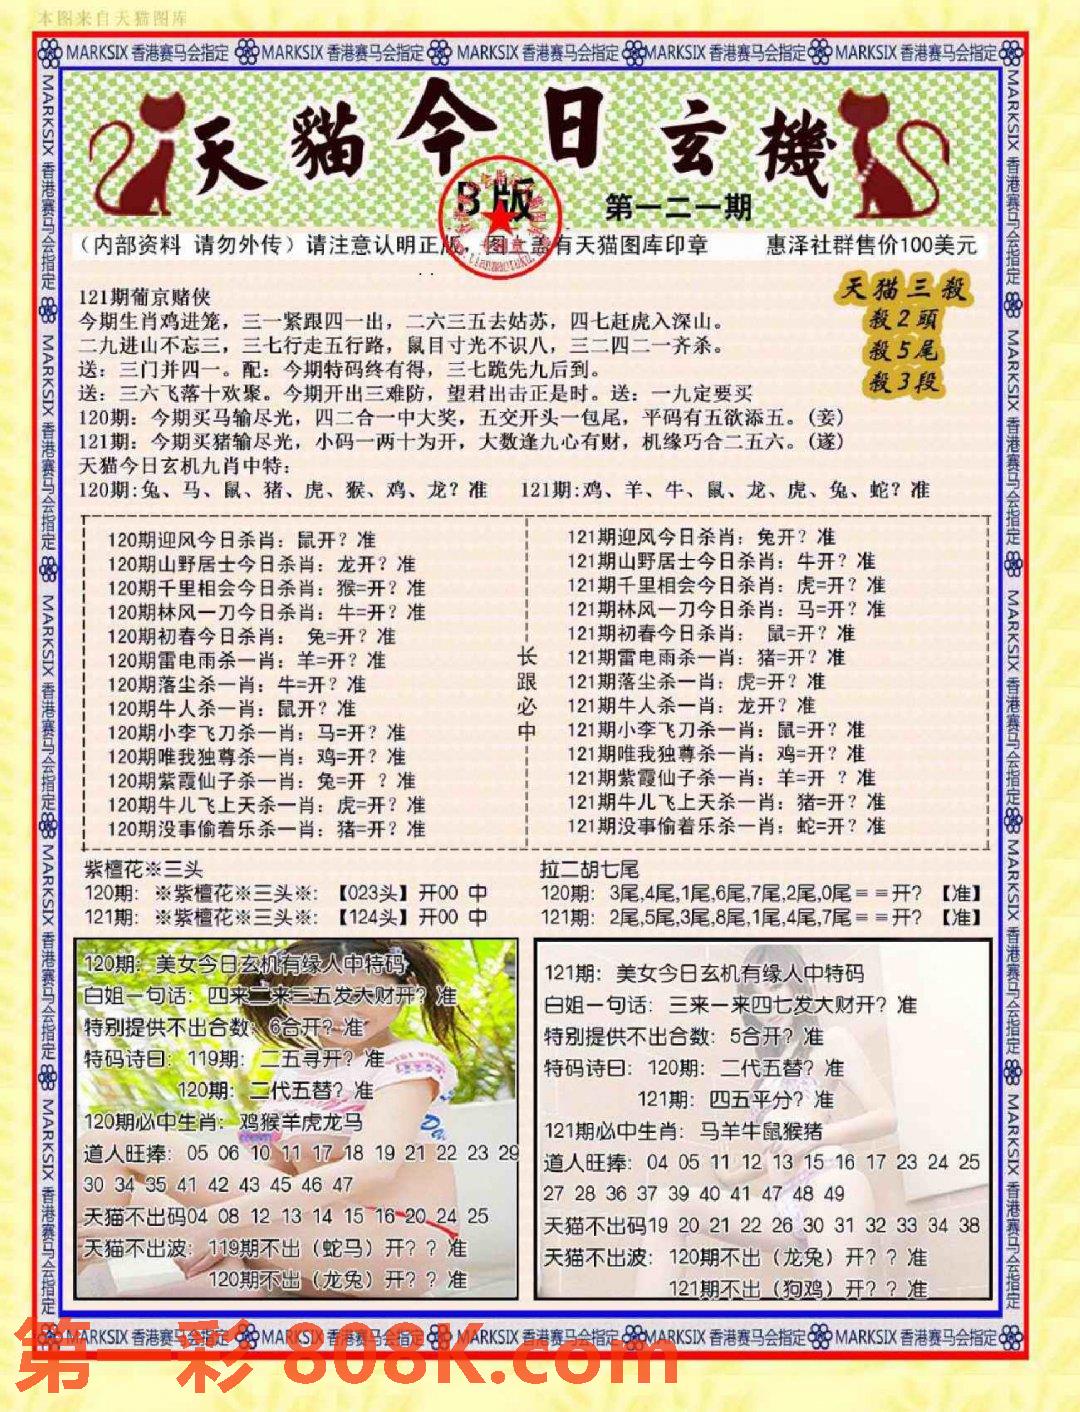 本图来自天猫图库
MARKSIX 香港赛马会指定 MARKSIX 香港赛马会指定 MARKSIX 香港赛马会指定 MARKSIX 香港赛马会指定 MARKSIX 香港赛马会指定
天貓今日玄機
B版
第一二一期
（内部资料 请勿外传）请注意认明正版，图上盖有天猫图库印章 惠泽社群售价100美元
天猫三殺
殺2頭
殺5尾
殺3段
121期葡京赌侠
今期生肖鸡进笼，三一紧跟四一出，二六三五去姑苏，四七赶虎入深山。
二九进山不忘三，三七行走五行路，鼠目寸光不识八，三二四二一齐杀。
送：三门并四一。配：今期特码终有得，三七跪先九后到。
送：三六飞落十欢聚。今期开出三难防，望君出击正是时。送：一九定要买
120期：今期买马输尽光，四二合一中大奖，五交开头一包尾，平码有五欲添五。(妾)
121期：今期买猪输尽光，小码一两十为开，大数逢九心有财，机缘巧合二五六。(遂)
天猫今日玄机九肖中特：
120期:兔、马、鼠、猪、虎、猴、鸡、龙？准 121期:鸡、羊、牛、鼠、龙、虎、兔、蛇？准
120期迎风今日杀肖：鼠开？准
120期山野居士今日杀肖：龙开？准
120期千里相会今日杀肖：猴=开？准
120期林风一刀今日杀肖：牛=开？准
120期初春今日杀肖： 兔=开？准
120期雷电雨杀一肖：羊=开？准
120期落尘杀一肖：牛=开？准
120期牛人杀一肖：鼠开？准
120期小李飞刀杀一肖：马=开？准
120期唯我独尊杀一肖：鸡=开？准
120期紫霞仙子杀一肖：兔=开 ？准
120期牛儿飞上天杀一肖：虎=开？准
120期没事偷着乐杀一肖：猪=开？准
长跟必中
121期迎风今日杀肖：兔开？准
121期山野居士今日杀肖：牛开？准
121期千里相会今日杀肖：虎=开？准
121期林风一刀今日杀肖：马=开？准
121期初春今日杀肖： 鼠=开？准
121期雷电雨杀一肖：猪=开？准
121期落尘杀一肖：虎=开？准
121期牛人杀一肖：龙开？准
121期小李飞刀杀一肖：鼠=开？准
121期唯我独尊杀一肖：鸡=开？准
121期紫霞仙子杀一肖：羊=开 ？准
121期牛儿飞上天杀一肖：猪=开？准
121期没事偷着乐杀一肖：蛇=开？准
紫檀花※三头
120期：※紫檀花※三头※：【023头】开00 中
121期：※紫檀花※三头※：【124头】开00 中
拉二胡七尾
120期：3尾,4尾,1尾,6尾,7尾,2尾,0尾==开？【准】
121期：2尾,5尾,3尾,8尾,1尾,4尾,7尾==开？【准】
120期：美女今日玄机有缘人中特码
白姐一句话：四来二来三五发大财开？准
特别提供不出合数：6合开？准
特码诗曰：119期：二五寻开？准
120期：二代五替？准
120期必中生肖：鸡猴羊虎龙马
道人旺捧：05 06 10 11 17 18 19 21 22 23 29
30 34 35 41 42 43 45 46 47
天猫不出码04 08 12 13 14 15 16 20 24 25
天猫不出波：119期不出（蛇马）开？？准
120期不出（龙兔）开？？准
121期：美女今日玄机有缘人中特码
白姐一句话：三来一来四七发大财开？准
特别提供不出合数：5合开？准
特码诗曰：120期：二代五替？准
121期：四五平分？准
121期必中生肖：马羊牛鼠猴猪
道人旺捧：04 05 11 12 13 15 16 17 23 24 25
27 28 36 37 39 40 41 47 48 49
天猫不出码19 20 21 22 26 30 31 32 33 34 38
天猫不出波：120期不出（龙兔）开？？准
121期不出（狗鸡）开？？准
MARKSIX 香港赛马会指定 MARKSIX 香港赛马会指定 MARKSIX 香港赛马会指定 MARKSIX 香港赛马会指定 MARKSIX 香港赛马会指定
第一彩 808K.com